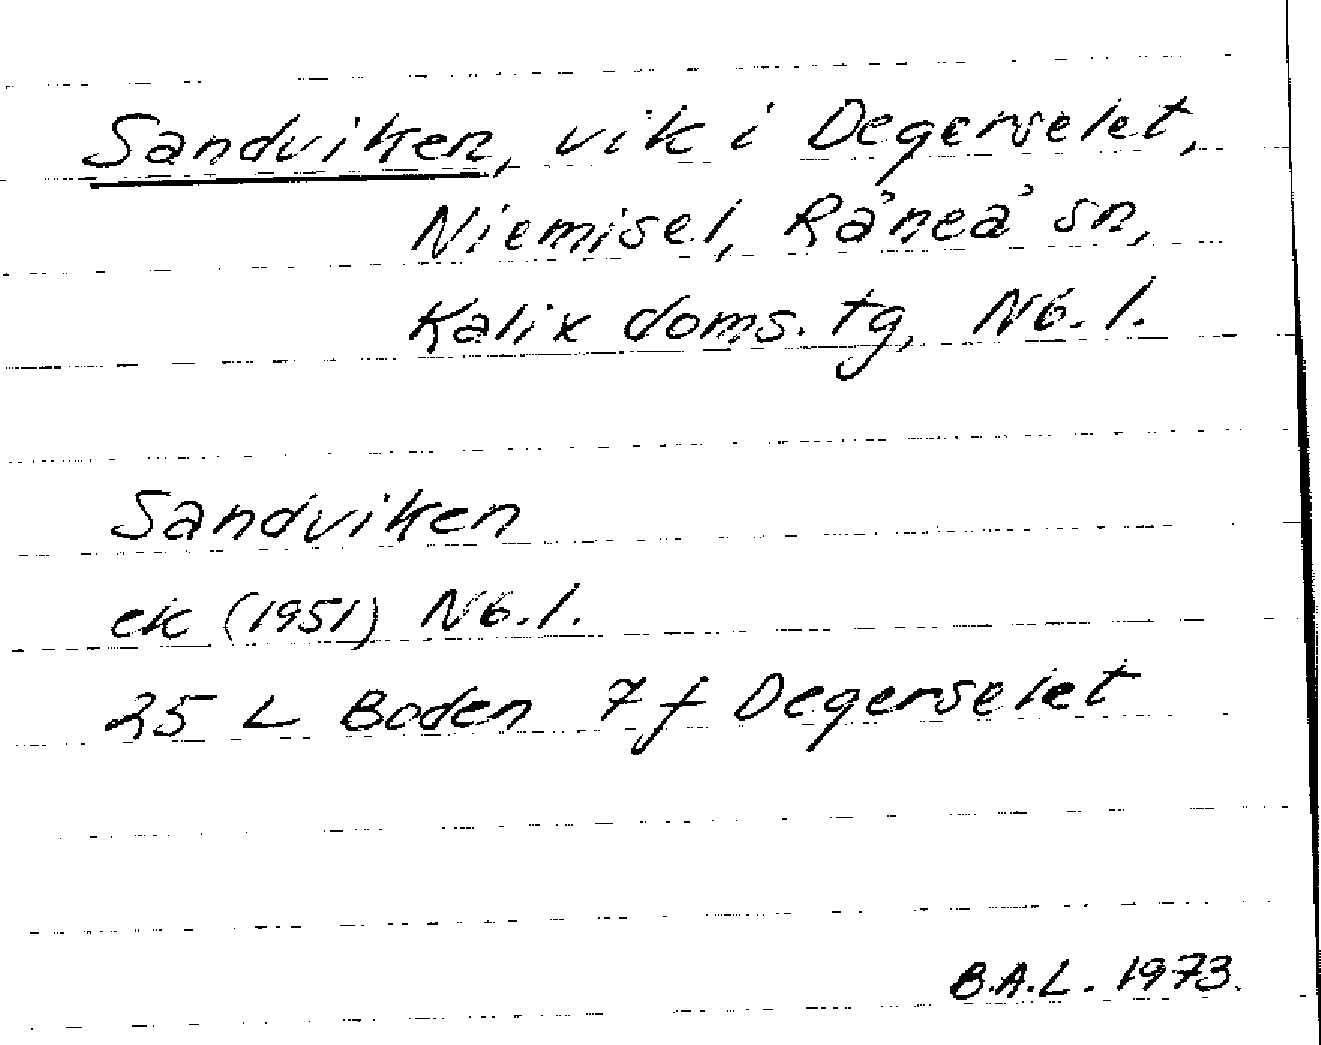 Sandviken, vik i Degerselet,
Niemisel, Råneå sn,
Kalix doms. tg, Nb. l.
Sandviken
ek (1951) Nb. l.
25 L Boden 7 f Degerselet
B.A.L. 1973.